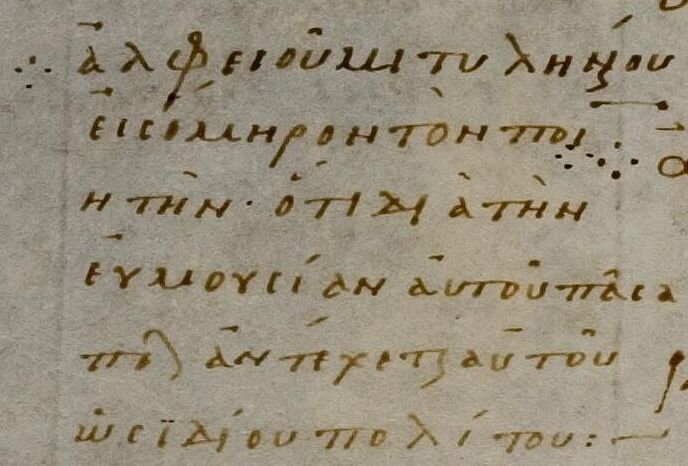 ἀλφειοῦ μιτυληναίου
εἰς ὅμηρον τὸν ποι
ητήν· ὅτι διὰ τὴν
εὐμουσίαν αὐτοῦ πᾶσα
πόλ ἀντέχετ αὐτοῦ
ὡς ἰδίου πολίτου: